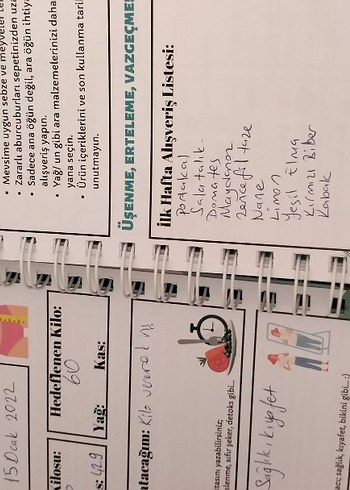 • Mevsime uygun sebze ve meyveler
• Zararlı aburcuburları sepetinizden
• Sadece ana öğün değil, ara öğün
alışveriş yapın.
• Yağ/un gibi ara malzemelerinizi daha
yana seçin.
• Ürün içeriklerini ve son kullanma
unutmayın.
ÜŞENME, ERTELEME, VAZGEÇME!
İlk Hafta Alışveriş Listesi:
Portakal
Salatalık
Domates
Maydanoz
Zencefil taze
Nane
Limon
Yeşil Elma
Kırmızı Biber
Kabak
15 Ocak 2022
Hedeflenen Kilo:
60
Yağ: Kas:
42,9
Kilo
yazabilirsiniz;
sıfır şeker, detoks gibi...
Sağlık, kıyafet
sağlık, kıyafet, bikini gibi..:)